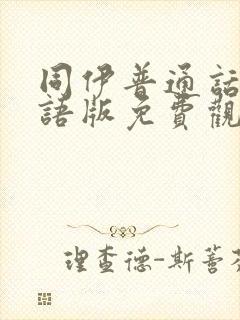 同伊普通話
語版免費觀
理查德-斯蓍芬